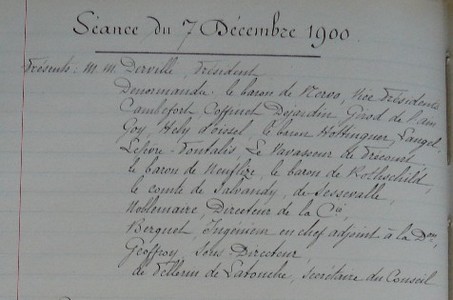 Séance du 7 Décembre 1900
Présents : M. M. Derville, Président
Denormandie, le baron de Nervo, Vice Présidents
Cambefort, Coffinet, Dejardin, Girod de l'Ain
Goy, Hely d'oissel, le baron Hottinguer,
Lefèvre-Pontalis, Le Vavasseur de Précourt
le baron de Neuflize, le baron de Rothschild,
le comte de Salvandy, de Sessevalle,
Noblemaire, Directeur de la Cie,
Berquet, Ingénieur en chef adjoint à la Don,
Geoffroy, Sous-Directeur,
de Pellerin de Latouche, Secrétaire du Conseil